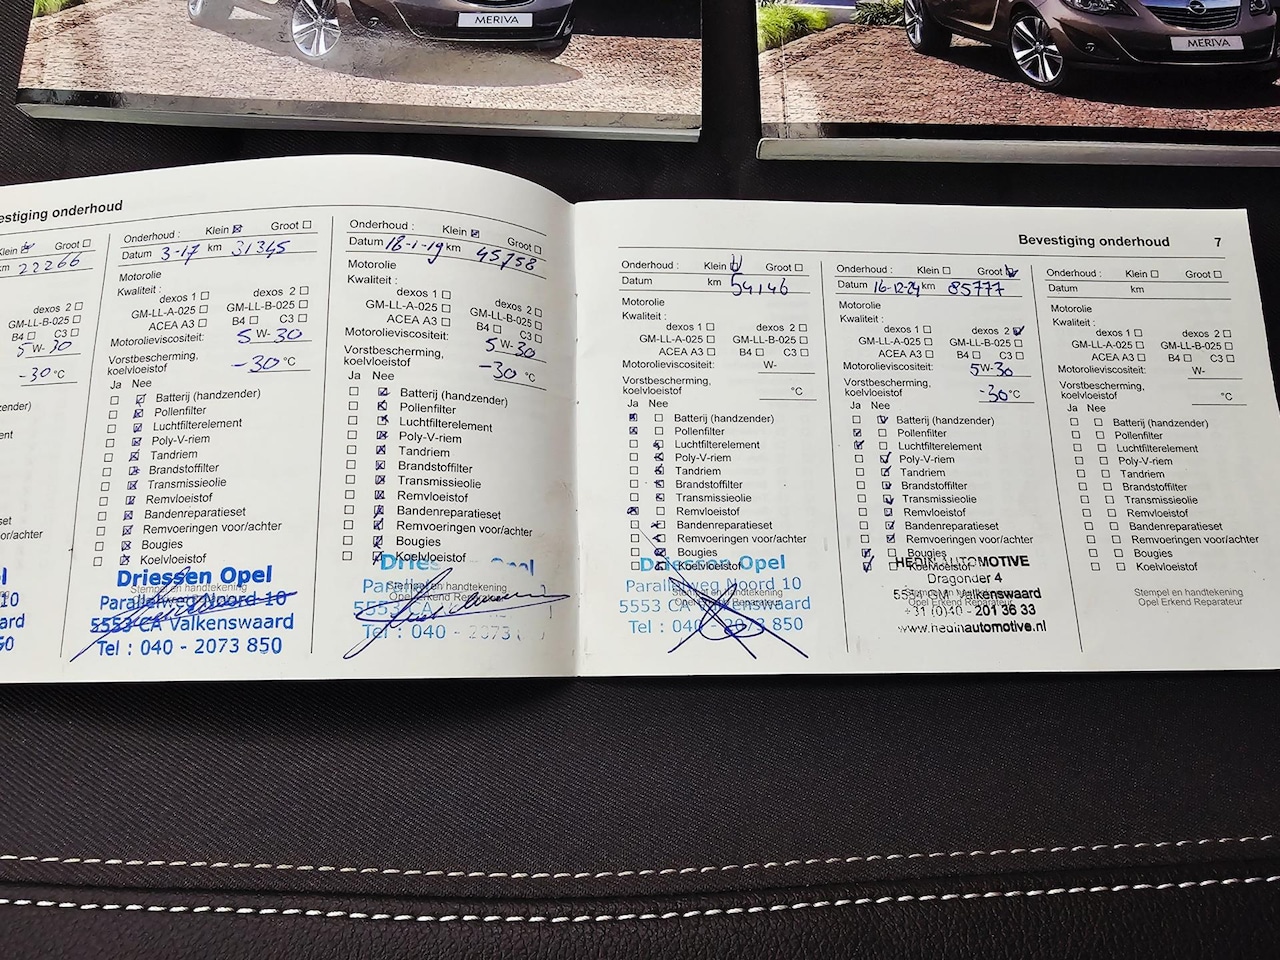 MERIVA
MERIVA
estiging onderhoud
Klein Groot
km 22266
dexos 2
GM-LL-B-025
B4 C3
5 W- 30
-30 °C
handzender)
ment
set
or/achter
Onderhoud : Klein Groot
Datum 3-17 km 31345
Motorolie
Kwaliteit :
dexos 1 dexos 2
GM-LL-A-025 GM-LL-B-025
ACEA A3 B4 C3
Motorolieviscositeit: 5 W- 30
Vorstbescherming,
koelvloeistof -30 °C
Ja Nee
Batterij (handzender)
Pollenfilter
Luchtfilterelement
Poly-V-riem
Tandriem
Brandstoffilter
Transmissieolie
Remvloeistof
Bandenreparatieset
Remvoeringen voor/achter
Bougies
Koelvloeistof
Driessen Opel
Parallelweg Noord 10
5553 CA Valkenswaard
Tel : 040 - 2073 850
Onderhoud : Klein Groot
Datum 18-1-19 km 45758
Motorolie
Kwaliteit :
dexos 1 dexos 2
GM-LL-A-025 GM-LL-B-025
ACEA A3 B4 C3
Motorolieviscositeit: 5 W- 30
Vorstbescherming,
koelvloeistof -30 °C
Ja Nee
Batterij (handzender)
Pollenfilter
Luchtfilterelement
Poly-V-riem
Tandriem
Brandstoffilter
Transmissieolie
Remvloeistof
Bandenreparatieset
Remvoeringen voor/achter
Bougies
Koelvloeistof
Stempel en handtekening
Opel Erkend Reparateur
5553 CA
Tel : 040 - 2073
Bevestiging onderhoud 7
Onderhoud : Klein Groot
Datum km 54146
Motorolie
Kwaliteit :
dexos 1 dexos 2
GM-LL-A-025 GM-LL-B-025
ACEA A3 B4 C3
Motorolieviscositeit: W-
Vorstbescherming,
koelvloeistof °C
Ja Nee
Batterij (handzender)
Pollenfilter
Luchtfilterelement
Poly-V-riem
Tandriem
Brandstoffilter
Transmissieolie
Remvloeistof
Bandenreparatieset
Remvoeringen voor/achter
Bougies
Koelvloeistof
Driessen Opel
Parallelweg Noord 10
5553 CA Valkenswaard
Tel : 040 - 2073 850
Onderhoud : Klein Groot
Datum 16-12-24 km 85777
Motorolie
Kwaliteit :
dexos 1 dexos 2
GM-LL-A-025 GM-LL-B-025
ACEA A3 B4 C3
Motorolieviscositeit: 5 W- 30
Vorstbescherming,
koelvloeistof -30 °C
Ja Nee
Batterij (handzender)
Pollenfilter
Luchtfilterelement
Poly-V-riem
Tandriem
Brandstoffilter
Transmissieolie
Remvloeistof
Bandenreparatieset
Remvoeringen voor/achter
Bougies
Koelvloeistof
HEDIN AUTOMOTIVE
Dragonder 4
5554 GM Valkenswaard
+31 (0)40 - 201 36 33
www.hedinautomotive.nl
Onderhoud : Klein Groot
Datum km
Motorolie
Kwaliteit :
dexos 1 dexos 2
GM-LL-A-025 GM-LL-B-025
ACEA A3 B4 C3
Motorolieviscositeit: W-
Vorstbescherming,
koelvloeistof °C
Ja Nee
Batterij (handzender)
Pollenfilter
Luchtfilterelement
Poly-V-riem
Tandriem
Brandstoffilter
Transmissieolie
Remvloeistof
Bandenreparatieset
Remvoeringen voor/achter
Bougies
Koelvloeistof
Stempel en handtekening
Opel Erkend Reparateur